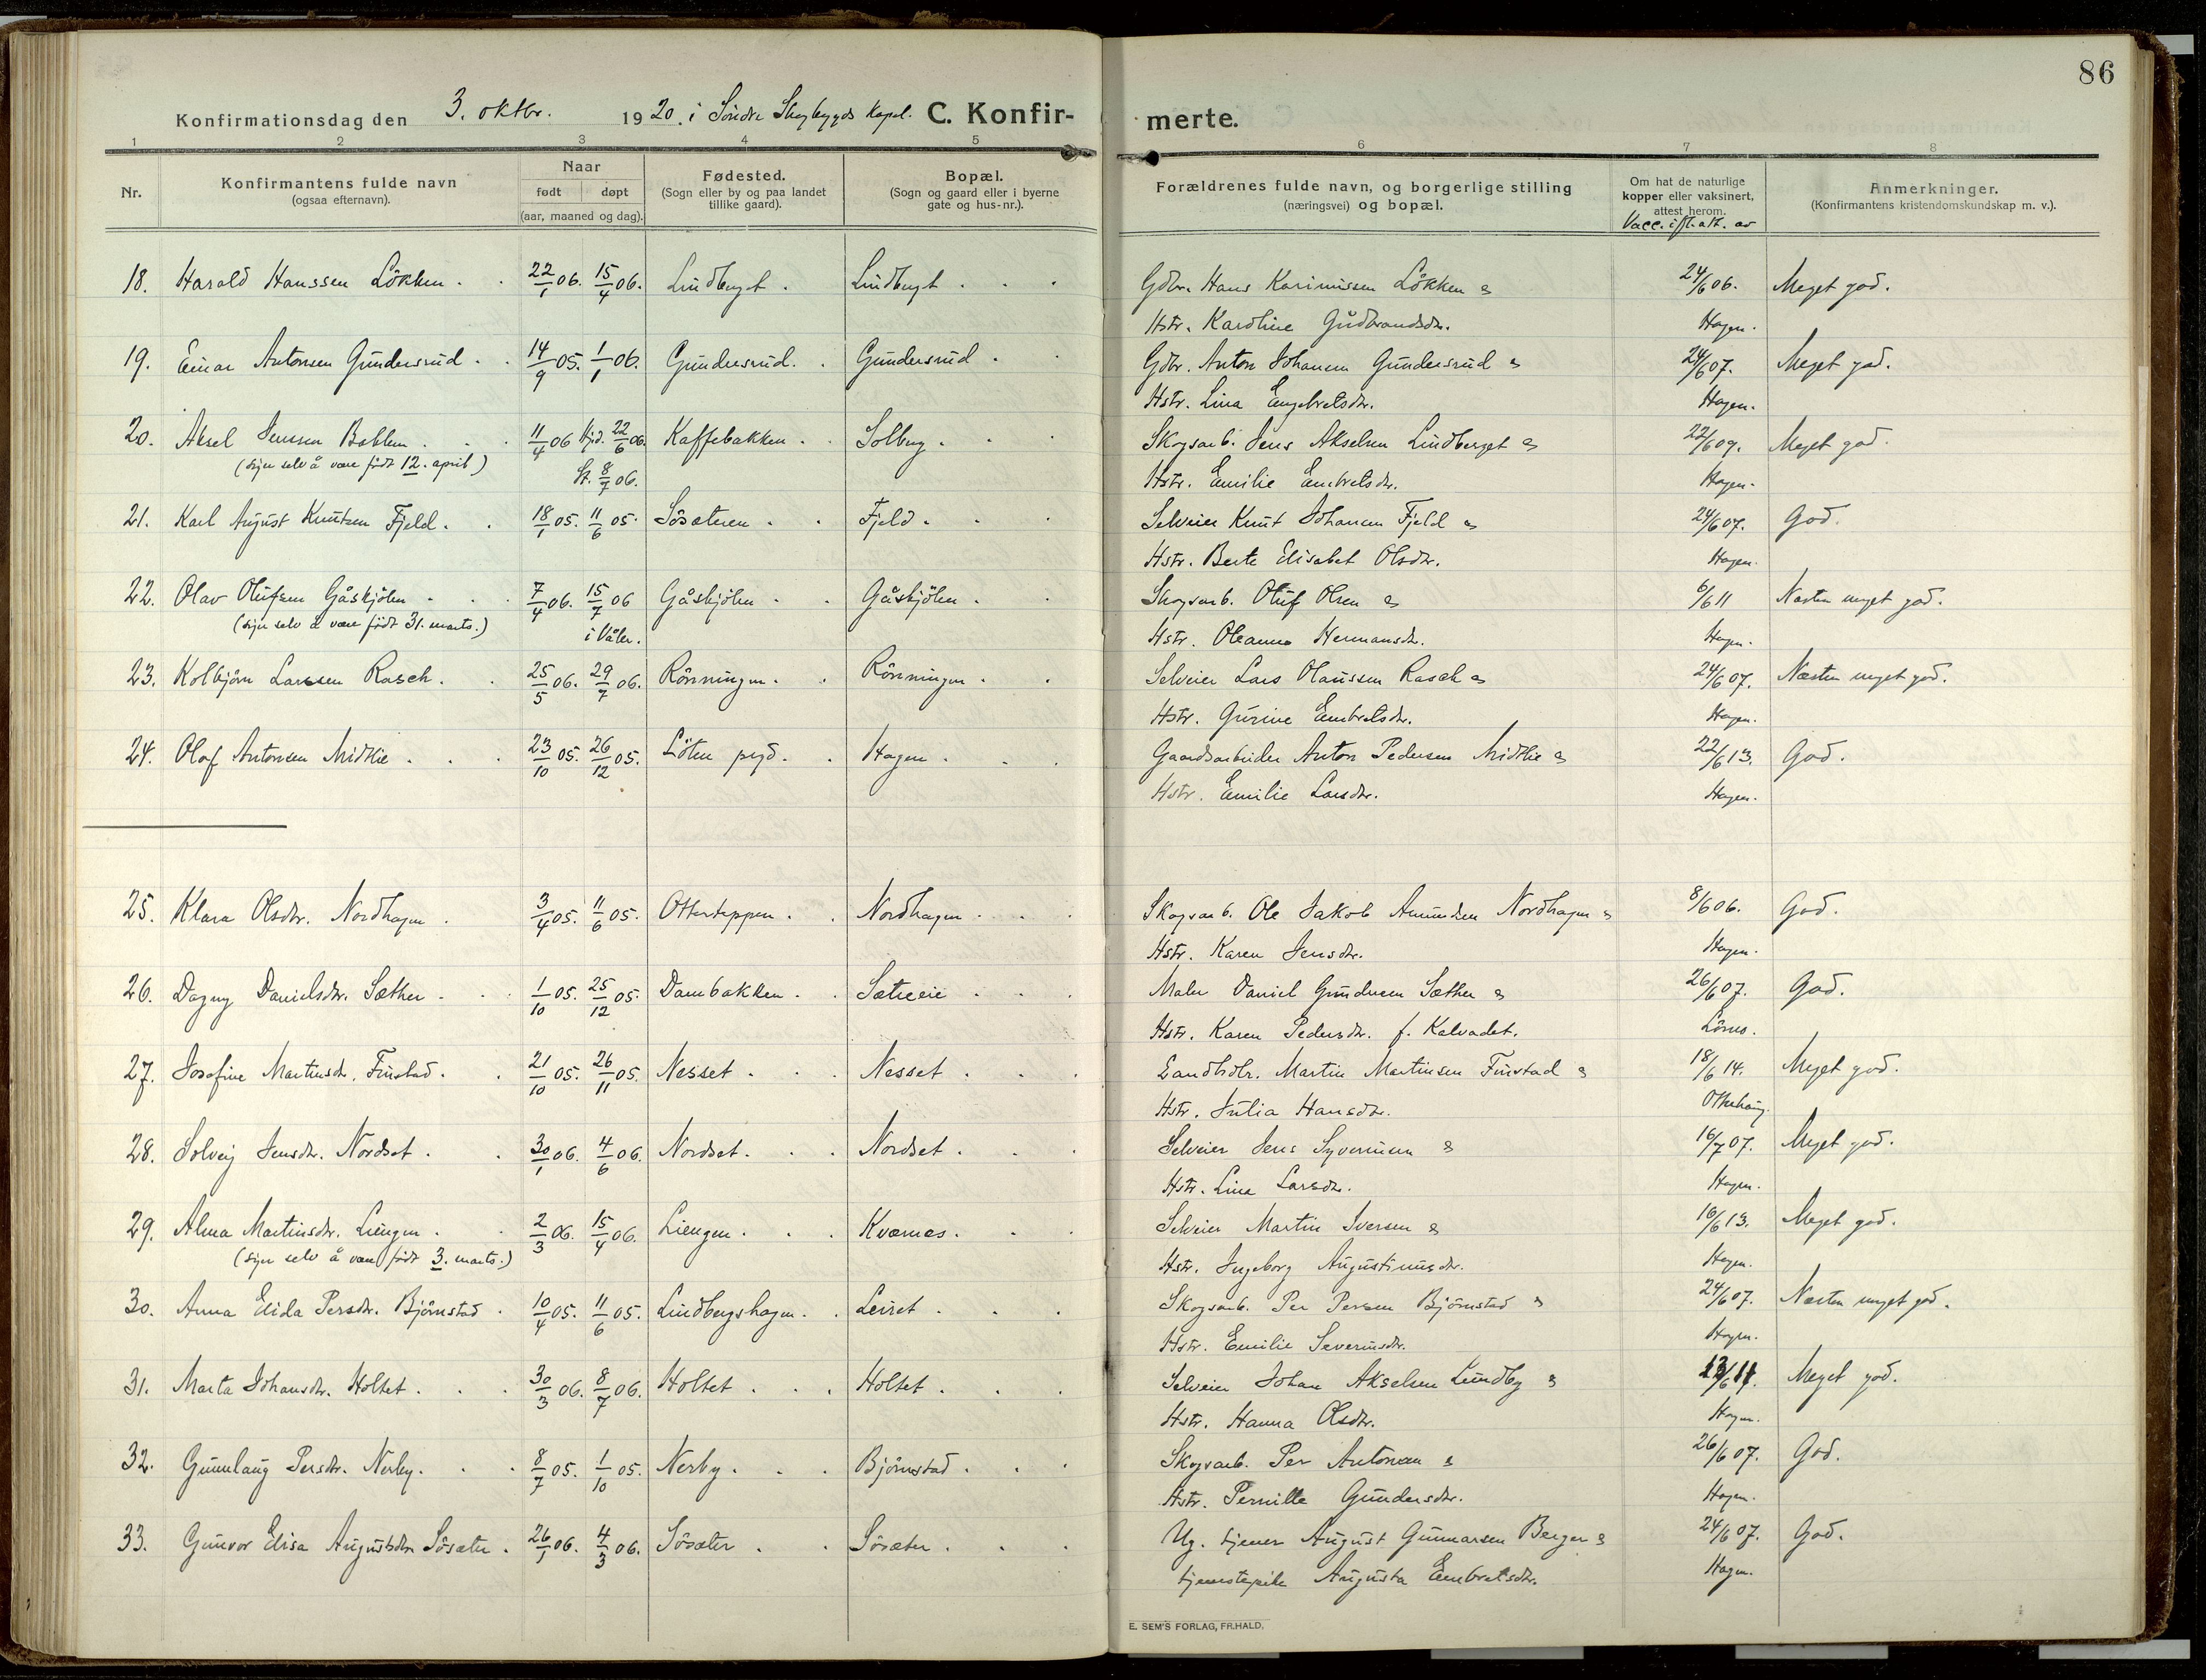 86
Konfirmationsdag den 3. oktbr. 1920. i Söndre Skogbygds Kapel. C. Konfirmerte.
1 2 3 4 5 6 7 8
Nr. Konfirmantens fulde navn (ogsaa efternavn). Naar født døpt (aar, maaned og dag). Fødested. (Sogn eller by og paa landet tillike gaard). Bopæl. (Sogn og gaard eller i byerne gate og hus-nr.). Forældrenes fulde navn, og borgerlige stilling (næringsvei) og bopæl. Om hat de naturlige kopper eller vaksinert, attest herom. Vacc. ifl. att. av Anmerkninger. (Konfirmantens kristendomskundskap m. v.).
18. Harald Hanssen Lökken 22/1 06. 15/4 06. Lindberget Lindberget Gdbr. Hans Karinussen Lökken & 24/6 06. Meget god.
Hstr. Karoline Gudbrandsdtr. Hagen.
19. Einar Antonsen Gundersrud 14/9 05. 1/1 06. Gundersrud. Gundersrud Gdbr. Anton Johansen Gundersrud & 24/6 07. Meget god.
Hstr. Lina Engebretsdtr. Hagen.
20. Aksel Jenssen 11/4 06 Hjd. 22/6 06. Kaffebakken Solberg Skogsarb. Jens Akselsen Lindberget & 22/6 09. Meget god.
(siger selv å være födt 12. april) St. 8/7 06. Hstr. Emilie Embretsdtr. Hagen.
21. Karl August Knutsen Fjeld. 18/1 05. 11/6 05. Sösæteren Fjeld. Selveier Knut Johansen Fjeld & 24/6 07. God.
Hstr. Berte Elisabet Olsdtr. Hagen.
22. Olav Olufsen Gåskjölen 7/4 06. 15/7 06 Gåskjölen Gåskjölen. Skogsarb. Oluf Olsen & 6/6 11 Næsten meget god.
(siger selv å være födt 31. marts.) i Våler. Hstr. Oleanna Hermansdtr. Hagen.
23. Kolbjörn Larssen Rasch. 25/5 06. 29/7 06. Rönningen. Rönningen Selveier Lars Olaussen Rasch & 24/6 07. Næsten meget god.
Hstr. Gurine Embretsdtr. Hagen.
24. Olaf Antonsen Midtlie 23/10 05. 26/12 05. Löten prgd. Hagen Gaardsarbeider Anton Pedersen Midtlie & 22/6 13. God.
Hstr. Emilie Larsdtr. Hagen.
25. Klara Olsdtr. Nordhagen 3/4 05. 11/6 05. Otterteppen Nordhagen Skogsarb. Ole Jakob Amundsen Nordhagen & 8/6 06. God.
Hstr. Karen Jensdtr. Hagen.
26. Dagny Danielsdtr. Sæther 1/10 05. 25/12 05. Dambakken Sætreeie Maler Daniel Gundersen Sæther & 26/6 07. God.
Hstr. Karen Pedersdtr. f. Kalvadet.
27. Josefine Martinsdtr. Finstad. 21/10 05. 26/11 05. Nesset Nesset Landhdlr. Martin Martinsen Finstad & 18/6 14. Meget god.
Hstr. Julia Hansdtr.
28. Solveig Jensdtr. Nordset 30/1 06. 4/6 06. Nordset. Nordset Selveier Jens Syverinsen & 16/7 07. Meget god.
Hstr. Lina Larsdtr. Hagen.
29. Alma Martinsdtr. Liengen 2/3 06. 15/4 06. Liengen Kværnes Selveier Martin Iversen & 16/6 13. Meget god.
(siger selv å være födt 3. marts.) Hstr. Ingeborg Augustinusdtr. Hagen.
30. Anna Elida Persdtr. Björnstad 10/4 05. 11/6 05. Lindbergshagen. Leiret Skogsarb. Per Persen Björnstad & 24/6 07. Næsten meget god.
Hstr. Emilie Severinsdtr. Hagen.
31. Marta Johansdtr. Holtet 30/3 06. 8/7 06. Holtet Holtet Selveier Johan Akselsen Lundby & Meget god.
Hstr. Hanna Olsdtr. Hagen.
32. Gunnlaug Persdtr. Nerby. 8/7 05. 1/10 05. Nerby Björnstad Skogsarb. Per Antonsen & 26/6 07. God.
Hstr. Pernille Gundersdtr. Hagen.
33. Gunvor Elisa Augustsdtr. Sösæter 26/1 06. 4/3 06. Sösæter Sösæter Ug. tjener August Gunnarsen Berger & 24/6 07. God.
tjenestepike Augusta Embretsdtr. Hagen.
E. SEM'S FORLAG, FR.HALD.